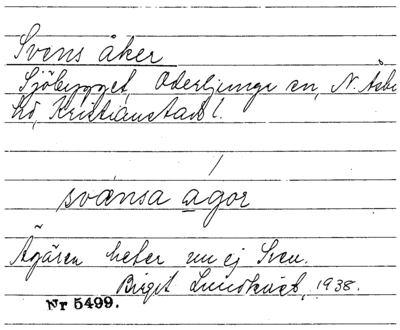 Svens åker
Sjöbygget, Oderljunga sn, N. Åsbo
hd, Kristianstads l.
svænsa agor
Ägaren heter nu ej Sven.
Birgit Lundkvist, 1938.
Nr 5499.